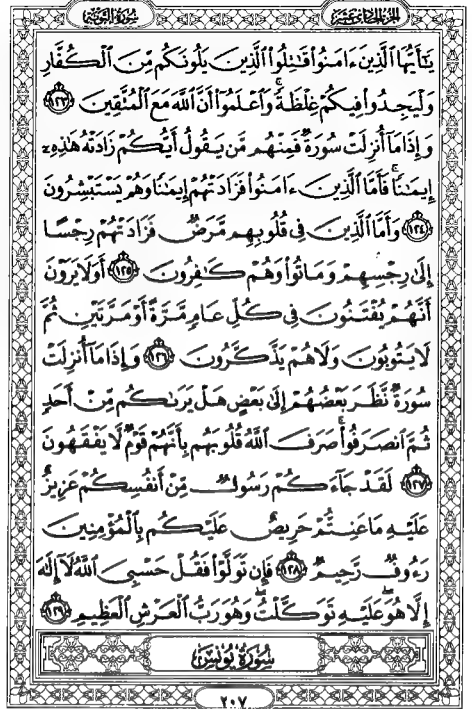 سُورَةُ التَّوْبَةِ
الجُزْءُ الحَادِي عَشَرَ
يَٰٓأَيُّهَا ٱلَّذِينَ ءَامَنُوا۟ قَٰتِلُوا۟ ٱلَّذِينَ يَلُونَكُم مِّنَ ٱلْكُفَّارِ
وَلْيَجِدُوا۟ فِيكُمْ غِلْظَةً ۚ وَٱعْلَمُوٓا۟ أَنَّ ٱللَّهَ مَعَ ٱلْمُتَّقِينَ ١٢٣
وَإِذَا مَآ أُنزِلَتْ سُورَةٌ فَمِنْهُم مَّن يَقُولُ أَيُّكُمْ زَادَتْهُ هَٰذِهِۦٓ
إِيمَٰنًا ۚ فَأَمَّا ٱلَّذِينَ ءَامَنُوا۟ فَزَادَتْهُمْ إِيمَٰنًا وَهُمْ يَسْتَبْشِرُونَ
١٢٤ وَأَمَّا ٱلَّذِينَ فِى قُلُوبِهِم مَّرَضٌ فَزَادَتْهُمْ رِجْسًا
إِلَىٰ رِجْسِهِمْ وَمَاتُوا۟ وَهُمْ كَٰفِرُونَ ١٢٥ أَوَلَا يَرَوْنَ
أَنَّهُمْ يُفْتَنُونَ فِى كُلِّ عَامٍ مَّرَّةً أَوْ مَرَّتَيْنِ ثُمَّ
لَا يَتُوبُونَ وَلَا هُمْ يَذَّكَّرُونَ ١٢٦ وَإِذَا مَآ أُنزِلَتْ
سُورَةٌ نَّظَرَ بَعْضُهُمْ إِلَىٰ بَعْضٍ هَلْ يَرَىٰكُم مِّنْ أَحَدٍ
ثُمَّ ٱنصَرَفُوا۟ ۚ صَرَفَ ٱللَّهُ قُلُوبَهُم بِأَنَّهُمْ قَوْمٌ لَّا يَفْقَهُونَ
١٢٧ لَقَدْ جَآءَكُمْ رَسُولٌ مِّنْ أَنفُسِكُمْ عَزِيزٌ
عَلَيْهِ مَا عَنِتُّمْ حَرِيصٌ عَلَيْكُم بِٱلْمُؤْمِنِينَ
رَءُوفٌ رَّحِيمٌ ١٢٨ فَإِن تَوَلَّوْا۟ فَقُلْ حَسْبِىَ ٱللَّهُ لَآ إِلَٰهَ
إِلَّا هُوَ ۖ عَلَيْهِ تَوَكَّلْتُ ۖ وَهُوَ رَبُّ ٱلْعَرْشِ ٱلْعَظِيمِ ١٢٩
سُورَةُ يُونُسَ
٢٠٧